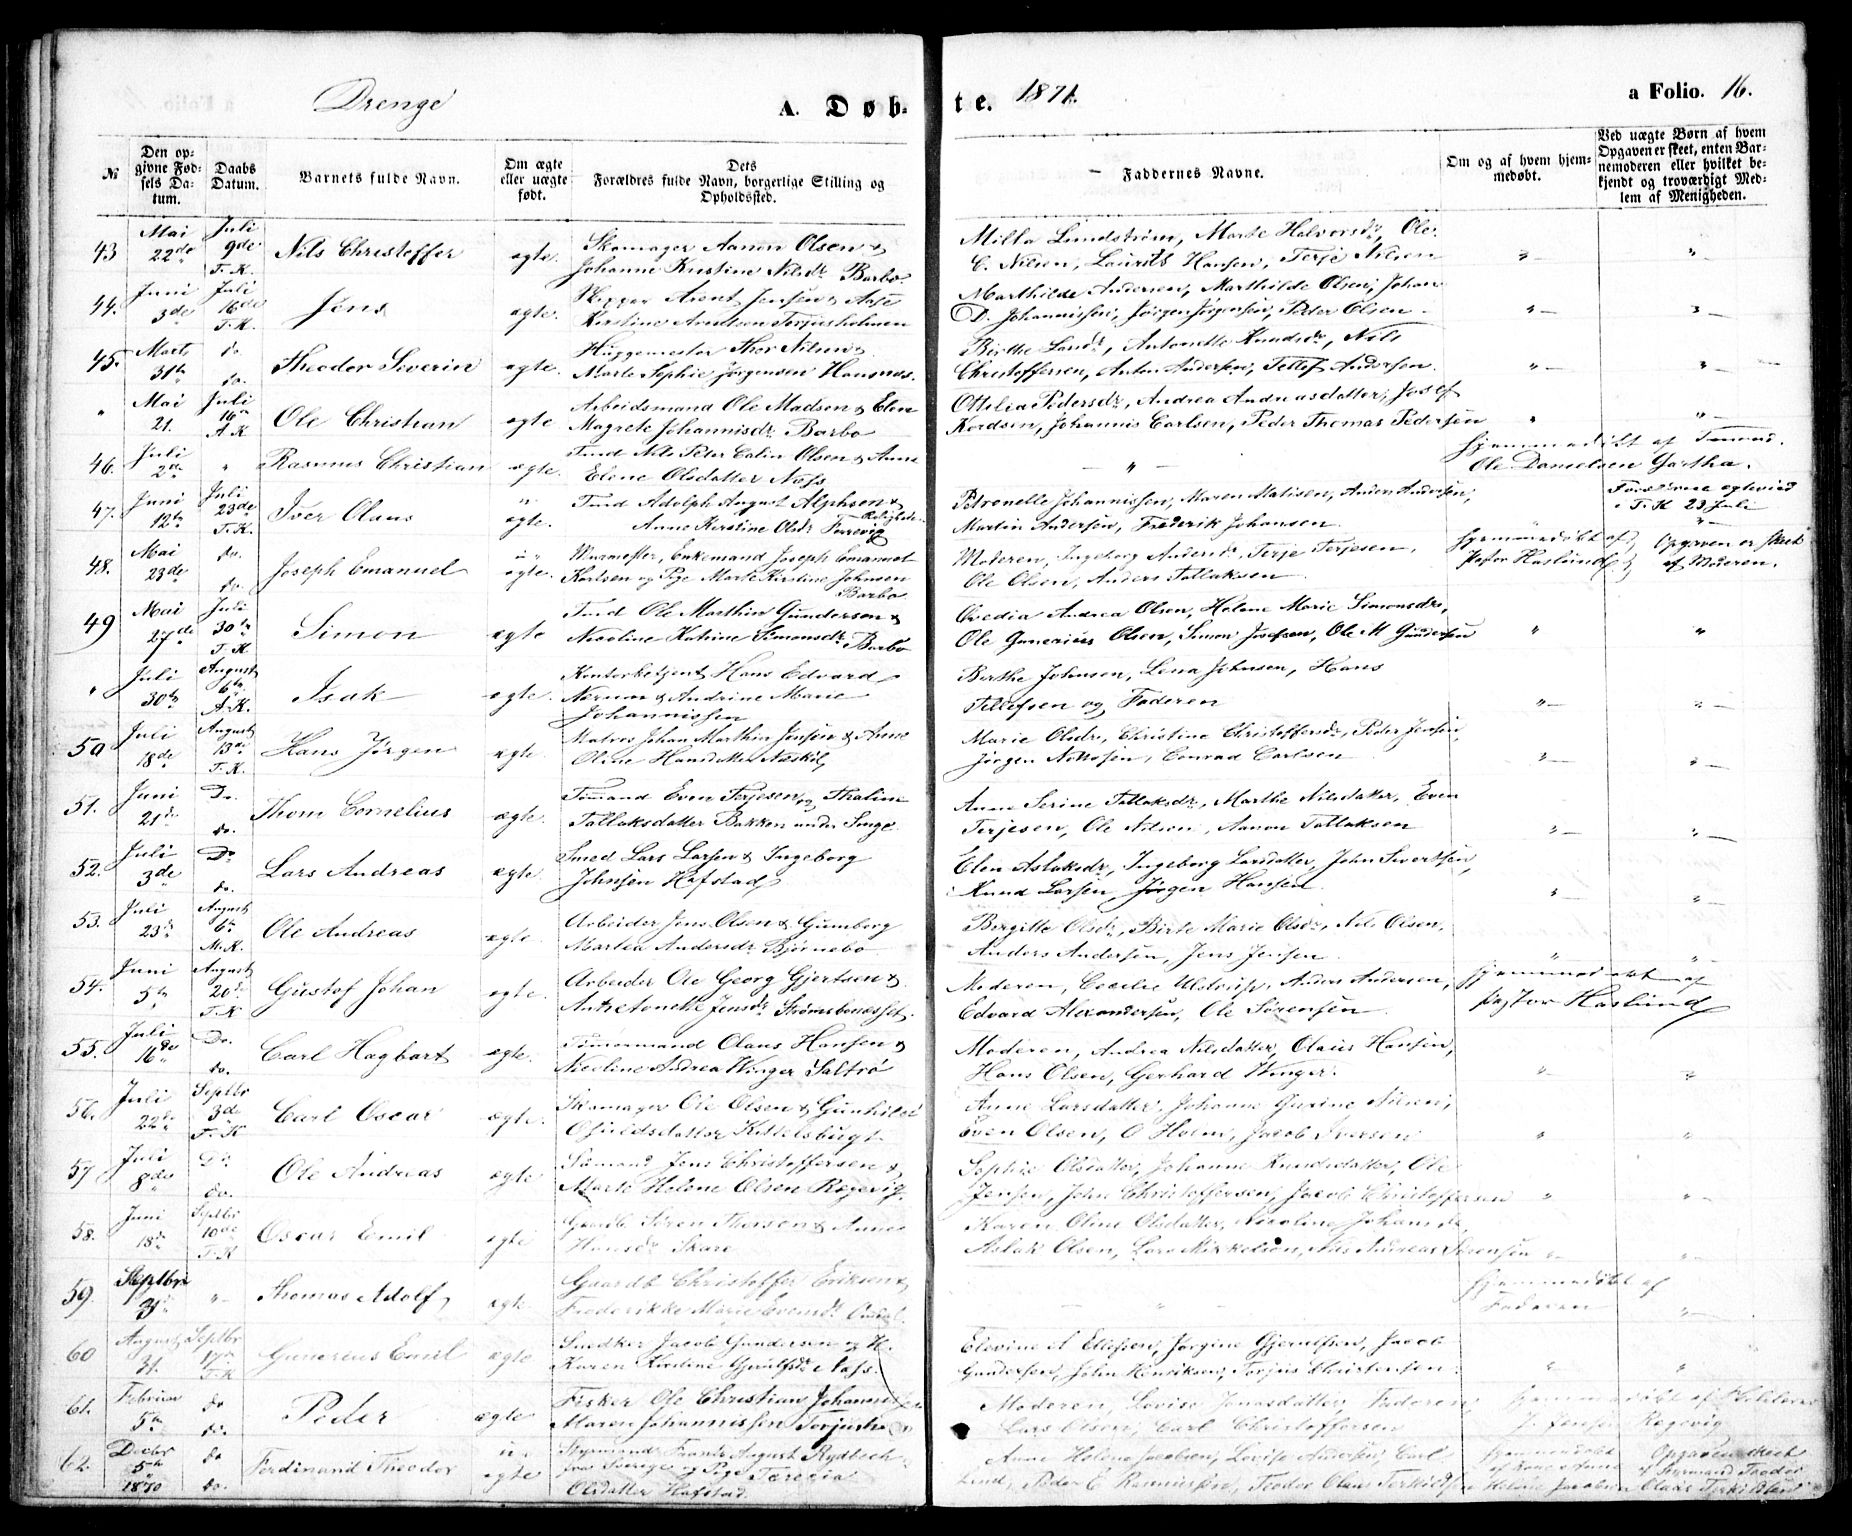 Drenge
A. Døb-
te. 1871.
a Folio. 16.
№
Den op-
givne Fød-
sels Da-
tum.
Daabs
Datum.
Barnets fulde Navn.
Om ægte
eller uægte
født.
Dets
Forældres fulde Navn, borgerlige Stilling og
Opholdssted.
Faddernes Navne.
Om og af hvem hjem-
medøbt.
Ved uægte Børn af hvem
Opgaven er skeet, enten Bar-
nemoderen eller hvilket be-
kjendt og troværdigt Med-
lem af Menigheden.
43 Mai 22de Juli 9de T. K. Nils Christoffer ægte. Skomager Aanon Olsen &
Johanne Kristine Nilsdr Barbo.
Milla Lundstrøm, Marte Halvorsdr, Ole
C. Nilsen, Laurits Hansen, Terje Nilsen
44. Juni 3de Juli 16de T. K. Jens ægte. Skipper Arent Jensen & Aase
Kirstine Arntsen Torjusholmen
Marthilde Andersen, Marthilde Olsen, Johan
D. Johannissen, Jørgen Jørgensen, Peder Olsen
45. Marts 31te do. do. Theodor Severin ægte. Huggemester Thor Nilsen &
Marte Sophie Jørgensen Hansnæs.
Birthe Larsdr, Antonette Knudsdr, Nils
Christoffersen, Anton Andersen, Tellef Andersen
" Mai 21. Juli 16de A K. Ole Christian ægte Arbeidsmand Ole Madsen & Elen
Magrete Johannisdr Barbo
Ottilia Pedersdr, Andrea Andreasdatter, Josef
Kordsen, Johannis Carlsen, Peder Thomas Pedersen
46. Juli 2de " Rasmus Christian ægte. Tmd Nils Peter Calin Olsen & Anne
Elene Olsdatter Næss
Hjemmedøbt af Tmmd.
Ole Danielsen Gartha.
47. Juni 12te Juli 23de T. K. Iver Olaus ægte. Tmd Adolph August Alphsen &
Anne Kirstine Olsdr Færevig
Petronelle Johannissen, Maren Matisen, Anders Andersen,
Martin Andersen, Frederik Johansen
T. K 23 Juli
48. Mai 23de do. do. Joseph Emanuel u ægte. Murmester, Enkemand Joseph Emanuel
Karlsen og Pige Marte Kirstine Johnsen
Barbo
Moderen, Ingeborg Andersdr, Terje Terjesen,
Ole Olsen, Anders Tallaksen
Hjemmedøbt af
Pastor Haslund
Opgaven er skeet
af Moderen.
49 Mai 27de Juli 30te T. K. Simon ægte Tmd Ole Marthin Gundersen &
Nicoline Katrine Simonsdr Barbo
Ovedia Andrea Olsen, Helene Marie Simonsdr,
Ole Gunerius Olsen, Simon Josefsen, Ole M Gundersen
" Juli 30te August 6te A. K. Isak ægte. Kontorbetjent Hans Edvard
Nerum & Andrine Marie
Johannissen
Birthe Johnsen, Lena Johnsen, Hans
Tellefsen og Faderen
50 Juli 18de August 13de T. K. Hans Jørgen ægte. Matros Johan Marthin Jensen & Anne
Oline Hansdatter Neskil
Marie Olsdr, Christine Christoffersdr, Peder Jensen,
Jørgen Nottosen, Conrad Carlsen
51. Juni 21de Do. do. Thom Cornelius ægte. Tømmand Even Terjesen og Thaline
Tallaksdatter Bakken under Longe.
Anne Serine Tallaksdr, Marthe Nilsdatter, Even
Terjesen, Ole Nilsen, Aanon Tallaksen
52. Juli 3de Do. do. Lars Andreas ægte. Smed Lars Larsen & Ingeborg
Johnsen Hafstad
Elen Aslaksdr, Ingeborg Larsdatter, John Sivertsen,
Knud Larsen, Jørgen Hansen.
53. Juli 23de August 6te M. K. Ole Andreas ægte. Arbeider Jens Olsen & Gumborg
Martea Andersdr Bjørnebo
Birgitte Olsdr, Birte Marie Olsdr, Nils Olsen,
Anders Andersen, Jens Jensen
54. Juni 5te August 20de T. K Gustof Johan ægte. Arbeider Ole Georg Gjertsen &
Antonette Jensdr Strømsbonesset.
Moderen, Cecilie Uldrup, Anders Andersen,
Edvard Alexandersen, Ole Sørensen
Hjemmedøbt af
pastor Haslund
55. Juli 16de Do. do. Carl Hagbart ægte. Tømermand Olaus Hansen &
Nicoline Andrea Winger Saltrø
Moderen, Andrea Nilsdatter, Olaus Hansen,
Hans Olsen, Gerhard Winger.
56. Juli 22de Septbr 3de T. K Carl Oscar ægte. Skomager Ole Olsen & Gunhild
Osuldsdatter Kittelsbugt
Anne Larsdatter, Johanne Gurine Nilsen,
Even Olsen, O Holm, Jacob Iversen
57 Juli 8de Do. do. Ole Andreas ægte. Sømand Jens Christoffersen &
Marte Helene Olsen Rægevig.
Sophie Olsdatter, Johanne Knudsdatter, Ole
Jensen, John Christoffersen, Jacob Christoffersen
58. Juni 18de Septbr 10de T. K Oscar Emil ægte Gaardb. Søren Thorsen & Anne
Hansdr Skare
Karen Oline Olsdatter, Nicoline Johansdr,
Aslak Olsen, Lars Mikkelsen, Nils Andreas Sørensen
59. Septbr " Thomas Adolf ægte Gaardb Christoffer Eriksen &
Frederikke Marie Evensdr
Hjemmedøbt af
Faderen
60 August 31. Septbr 17de T. K Gunerius Emil ægte Snedker Jacob Gundersen og H.
Karen Kirstine Gjeruldsdr Næss.
Elevine A Ellefsen, Jørgine Gjerulfsen, Jacob
Gundersen, John Henriksen, Torjus Christensen.
61. Februar 5te do do. Peder ægte Fisker Ole Christian Johannisen
Maren Johannissen Torjusho
Moderen, Lovise Jonasdatter, Faderen,
Lars Olsen, Carl Christoffersen
Hjemmedøbt af
J. Jensen Rægevig
62. Decbr 5te 1870 do do. Ferdinand Theodor u ægte Styrmand Frants August Rydbeck
fra Sverige og Pige Teresia
Olsdatter Hafstad.
Anne Helene Jacobsen, Lovise Andersen, Carl
Lind, Peder E Rasmussen, Teodor Olaus Terkildsen
Hjemmedøbt
af Kone Anne
Helene Jacobsen
Opgaven skeet
af Styrmand Teodor
Olaus Terkildsen